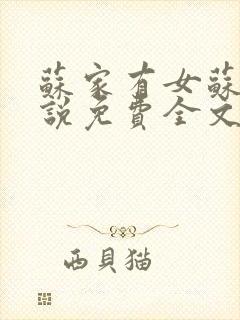 蘇家有女蘇
說免費全文
西貝猫